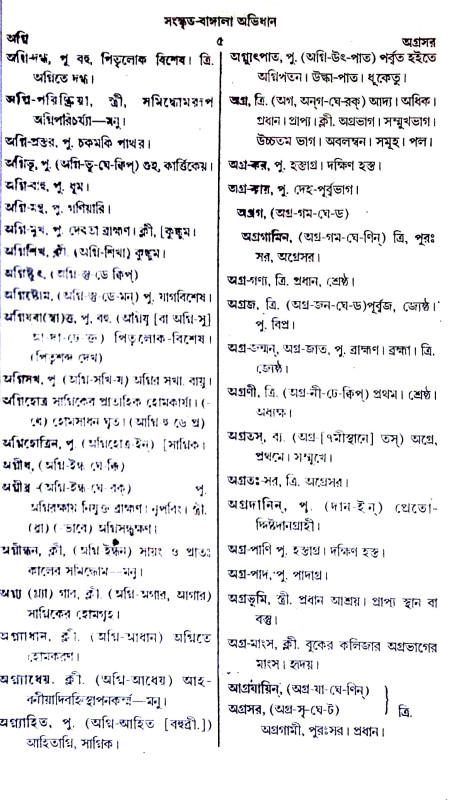 সংস্কৃত-বাঙ্গালা অভিধান
অগ্নি
৫
অগ্রসর
অগ্নি-দগ্ধ, পু বহু, পিতৃলোক বিশেষ। ত্রি.
অগ্নিতে দগ্ধ।
অগ্নি-পরিক্রিয়া, স্ত্রী, সমিদ্ধোমরূপ
অগ্নিপরিচর্য্যা—মনু।
অগ্নি-প্রস্তর, পু. চকমকি পাথর।
অগ্নিভূ, পু. (অগ্নি-ভূ-ঘে-ক্বিপ্) গুহ, কার্ত্তিকেয়।
অগ্নি-বাহু, পু. ধূম।
অগ্নি-মন্থ, পু. গণিয়ারি।
অগ্নি-মুখ, পু. দেবতা ব্রাহ্মণ। ক্লী, [কুঙ্কুম।
অগ্নিশিখ, ক্লী. (অগ্নি-শিখা) কুঙ্কুম।
অগ্নিষ্টুৎ, (অগ্নি-স্তু ডে ক্বিপ্)
অগ্নিষ্টোম, (অগ্নি-স্তু-ডে-মন্) পু. যাগবিশেষ।
অগ্নিষ্বা(স্বা)ত্ত, পু. বহু. (অগ্নিষু [বা অগ্নি-সু]
আ-দা-ঢে-ক্ত) পিতৃলোক-বিশেষ।
(পিতৃশব্দ দেখ)
অগ্নিসখ, পু (অগ্নি-সখি-য) অগ্নির সখা. বায়ু।
অগ্নিহোত্র সাগ্নিকের প্রাত্যহিক হোমকার্য্য। (-
ণে) হোমসাধন ঘৃত। (আগ্নি হু ডে ত্র)
অগ্নিহোত্রিন্, পু. (অগ্নিহোত্র-ইন্) [সাগ্নিক।
অগ্নীধ, (অগ্নি-ইন্ধ ঘে-ক্বি)
অগ্নীধ্র -(অগ্নি-ইন্ধ-ঘে-রক্) পু.
অগ্নিরক্ষায় নিযুক্ত ব্রাহ্মণ। নৃপবিং। স্ত্রী.
(ধ্রা) (-ভাবে) অগ্নিসন্ধুক্ষণ।
অগ্নীন্ধন, ক্লী, (অগ্নি ইন্ধন) সায়ং ও প্রাতঃ
কালের সমিদ্ধোম—মনু।
অগ্ন্য (গ্ন্যা) গার, ক্লী, (অগ্নি-অগার, আগার)
সাগ্নিকের হোমগৃহ।
অগ্ন্যাধান, ক্লী. (অগ্নি-আধান) অগ্নিতে
হোমকরণ।
অগ্ন্যাধেয়. ক্লী. (অগ্নি-আধেয়) আহ-
বনীয়াদিবহ্নিস্থাপনকর্ম্ম—মনু।
অগ্ন্যাহিত, পু. (অগ্নি-আহিত [বহুব্রী.])
আহিতাগ্নি, সাগ্নিক।
অগ্ন্যুৎপাত, পু. (অগ্নি-উৎ-পাত) পর্বৃত হইতে
অগ্নিপতন। উল্কা-পাত। ধূকেতু।
অগ্র, ত্রি. (অগ, অন্গ-ঘে-রক্) আদ্য। অধিক।
প্রধান। প্রাপ্য। ক্লী. অগ্রভাগ। সম্মুখভাগ।
উচ্চতম ভাগ। অবলম্বন। সমূহ। পল।
অগ্র-কর, পু. হস্তাগ্র। দক্ষিণ হস্ত।
অগ্র-কায়, পু. দেহ-পূর্ব্বভাগ।
অগ্রগ, (অগ্র-গম-ঘে-ড)
অগ্রগামিন্, (অগ্র-গম-ঘে-ণিন্) ত্রি, পুরঃ
সর, অগ্রেসর।
অগ্র-গণ্য, ত্রি. প্রধান, শ্রেষ্ঠ।
অগ্রজ, ত্রি. (অগ্র-জন-ঘে-ড)পূর্বৃজ, জ্যেষ্ঠ।
পু. বিপ্র।
অগ্র-জন্মন্, অগ্র-জাত, পু. ব্রাহ্মণ। ব্রহ্মা। ত্রি.
জ্যেষ্ঠ।
অগ্রণী, ত্রি. (অগ্র-নী-ঢে-ক্বিপ্) প্রথম। শ্রেষ্ঠ।
অধ্যক্ষ।
অগ্রতস্, ব্য. (অগ্র-[৭মীস্থানে] তস্) অগ্রে,
প্রথমে। সম্মুখে।
অগ্রতঃ-সর, ত্রি. অগ্রেসর।
অগ্রদানিন্, পু. (দান-ইন্) প্রেতো-
দ্দিষ্টদানগ্রাহী।
অগ্র-পাণি পু. হস্তাগ্র। দক্ষিণ হস্ত।
অগ্র-পাদ, পু. পাদাগ্র।
অগ্রভূমি, স্ত্রী. প্রধান আশ্রয়। প্রাপ্য স্থান বা
বস্তু।
অগ্র-মাংস, ক্লী. বুকের কলিজার অগ্রভাগের
মাংস। হৃদয়।
আগ্রযায়িন্, (অগ্র-যা-ঘে-ণিন্)
অগ্রসর, (অগ্র-সৃ-ঘে-ট) ত্রি.
অগ্রগামী, পুরঃসর। প্রধান।